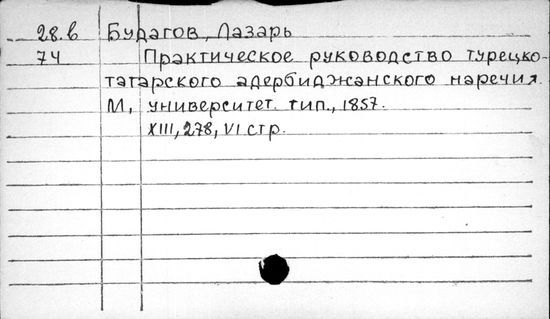 28.в Будагов, Лазарь
74 Практическое руководство турецко-
татарского адербиджанского наречия.
М, университет. тип., 1857.
XIII, 278, VI стр.